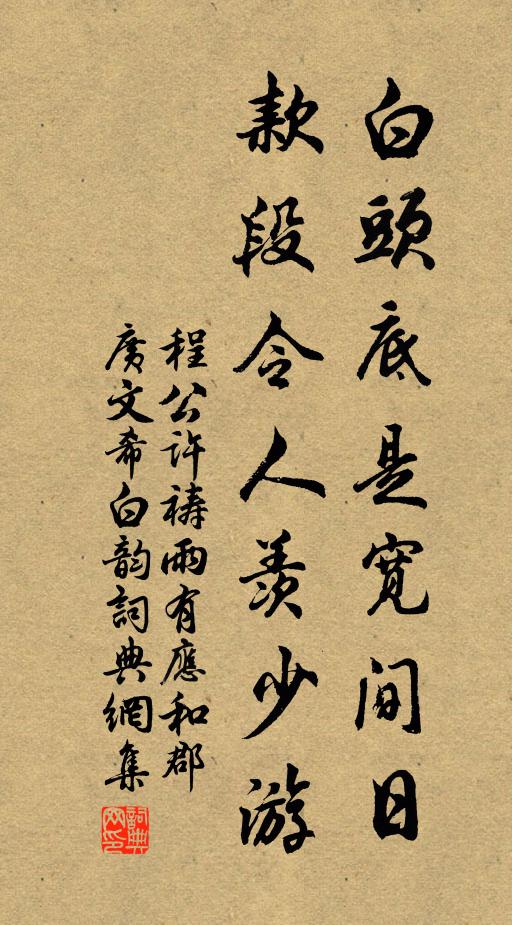 白頭底是寬間日
款段令人羨少游
程公許禱雨有應和郡
廣文希白韵詞典網集
詞典网印